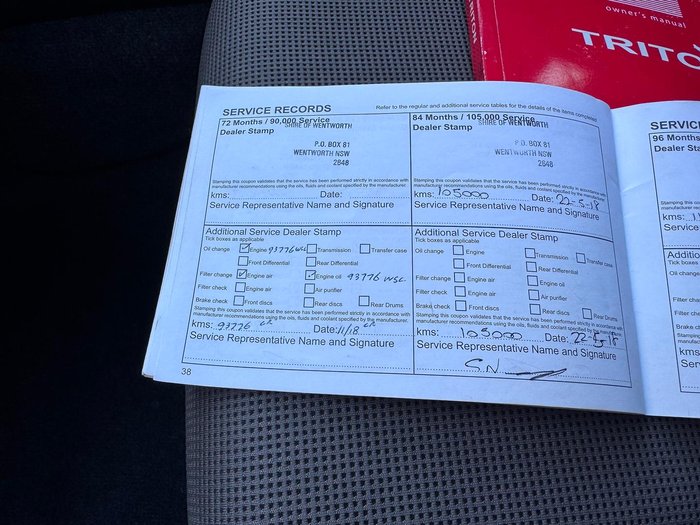 owner's manual
TRITO
SERVICE RECORDS
Refer to the regular and additional service tables for the details of the items completed
72 Months / 90,000 Service
SHIRE OF WENTWORTH
Dealer Stamp
P.O. BOX 81
WENTWORTH NSW
2648
Stamping this coupon validates that the service has been performed strictly in accordance with
manufacturer recommendations using the oils, fluids and coolant specified by the manufacturer.
kms: Date:
Service Representative Name and Signature
Additional Service Dealer Stamp
Tick boxes as applicable
Oil change Engine 93776 WSC Transmission Transfer case
Front Differential Rear Differential
Filter change Engine air Engine oil 93776 WSC.
Filter check Engine air Air purifier
Brake check Front discs Rear discs Rear Drums
Stamping this coupon validates that the service has been performed strictly in accordance with
manufacturer recommendations using the oils, fluids and coolant specified by the manufacturer.
kms: 93776 Date: 11/18
Service Representative Name and Signature
38
84 Months / 105,000 Service
SHIRE OF WENTWORTH
Dealer Stamp
P.O. BOX 81
WENTWORTH NSW
2648
Stamping this coupon validates that the service has been performed strictly in accordance with
manufacturer recommendations using the oils, fluids and coolant specified by the manufacturer.
kms: 105000 Date: 22-5-18
Service Representative Name and Signature
Additional Service Dealer Stamp
Tick boxes as applicable
Oil change Engine Transmission Transfer case
Front Differential Rear Differential
Filter change Engine air Engine oil
Filter check Engine air Air purifier
Brake check Front discs Rear discs Rear Drums
Stamping this coupon validates that the service has been performed strictly in accordance with
manufacturer recommendations using the oils, fluids and coolant specified by the manufacturer.
kms: 105000 Date: 22-5-18
Service Representative Name and Signature
S.N
SERVIC
96 Months
Dealer Sta
kms:
Service
Additio
Tick boxes
Oil change
Filter change
Filter check
Brake check
kms:
Service